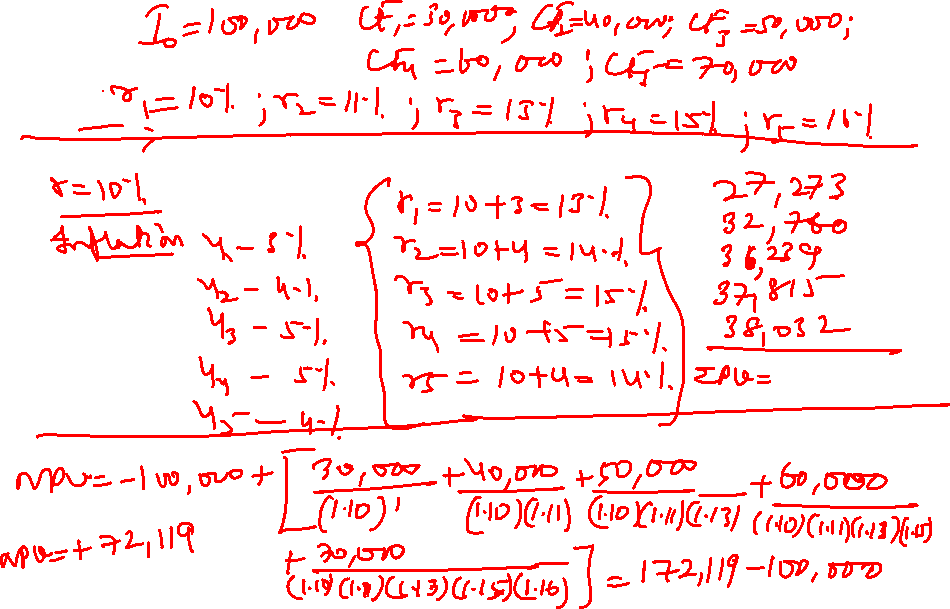 I₀=100,000 CF₁=30,000; CF₂=40,000; CF₃=50,000;
CF₄=60,000; CF₅=70,000
r₁=10%; r₂=11%; r₃=13%; r₄=15%; r₅=16%
r=10%
Inflation Y₁ – 3%
Y₂ – 4%
Y₃ – 5%
Y₄ – 5%
Y₅ – 4%
r₁=10+3=13%
r₂=10+4=14%
r₃=10+5=15%
r₄=10+5=15%
r₅=10+4=14%
27,273
32,760
36,239
37,815
38,032
ΣPV=
NPV=-100,000+[30,000/(1.10)¹ + 40,000/(1.10)(1.11) + 50,000/(1.10)(1.11)(1.13) + 60,000/(1.10)(1.11)(1.13)(1.15)
NPV=+72,119
+ 70,000/(1.10)(1.11)(1.13)(1.15)(1.16)] = 172,119-100,000